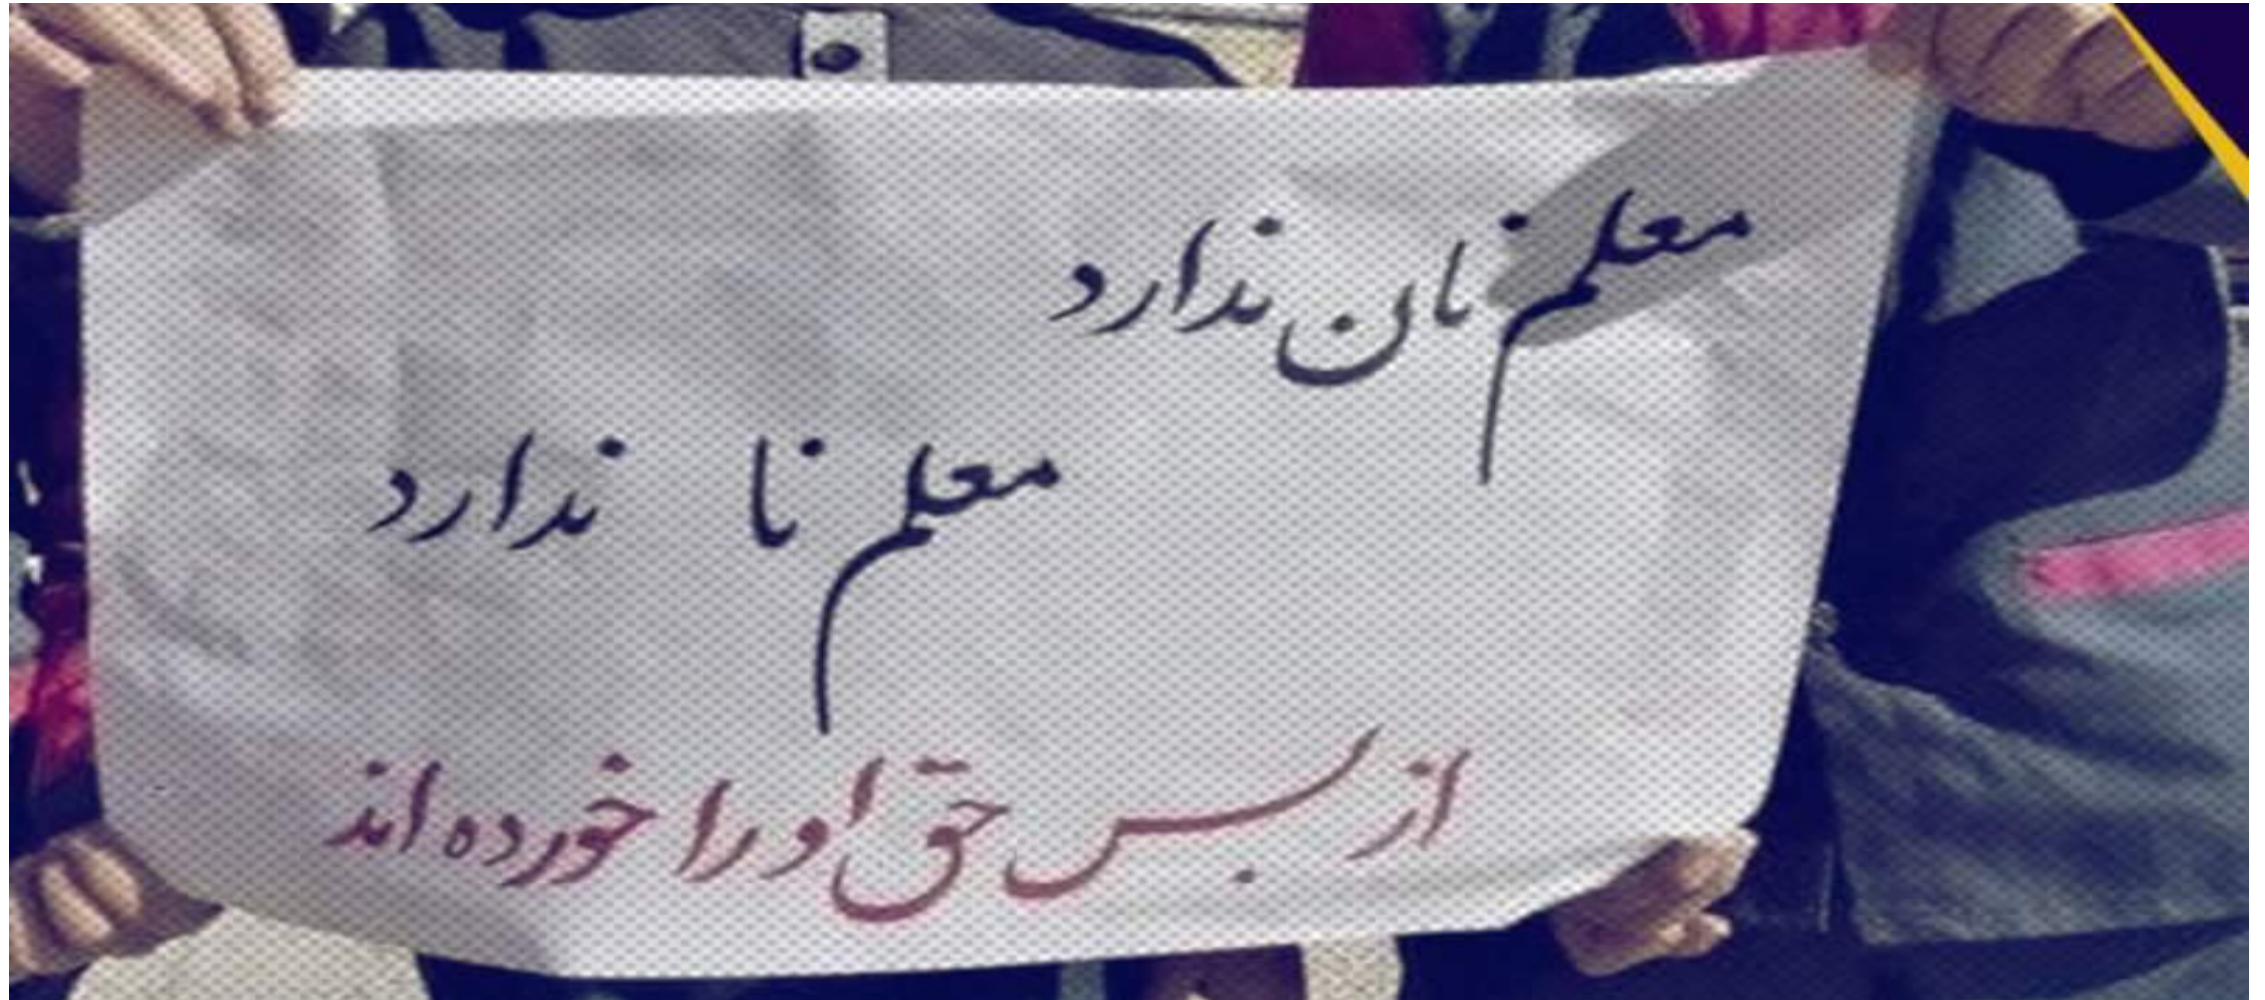 معلم نان ندارد
معلم نا ندارد
از بس حق او را خورده اند